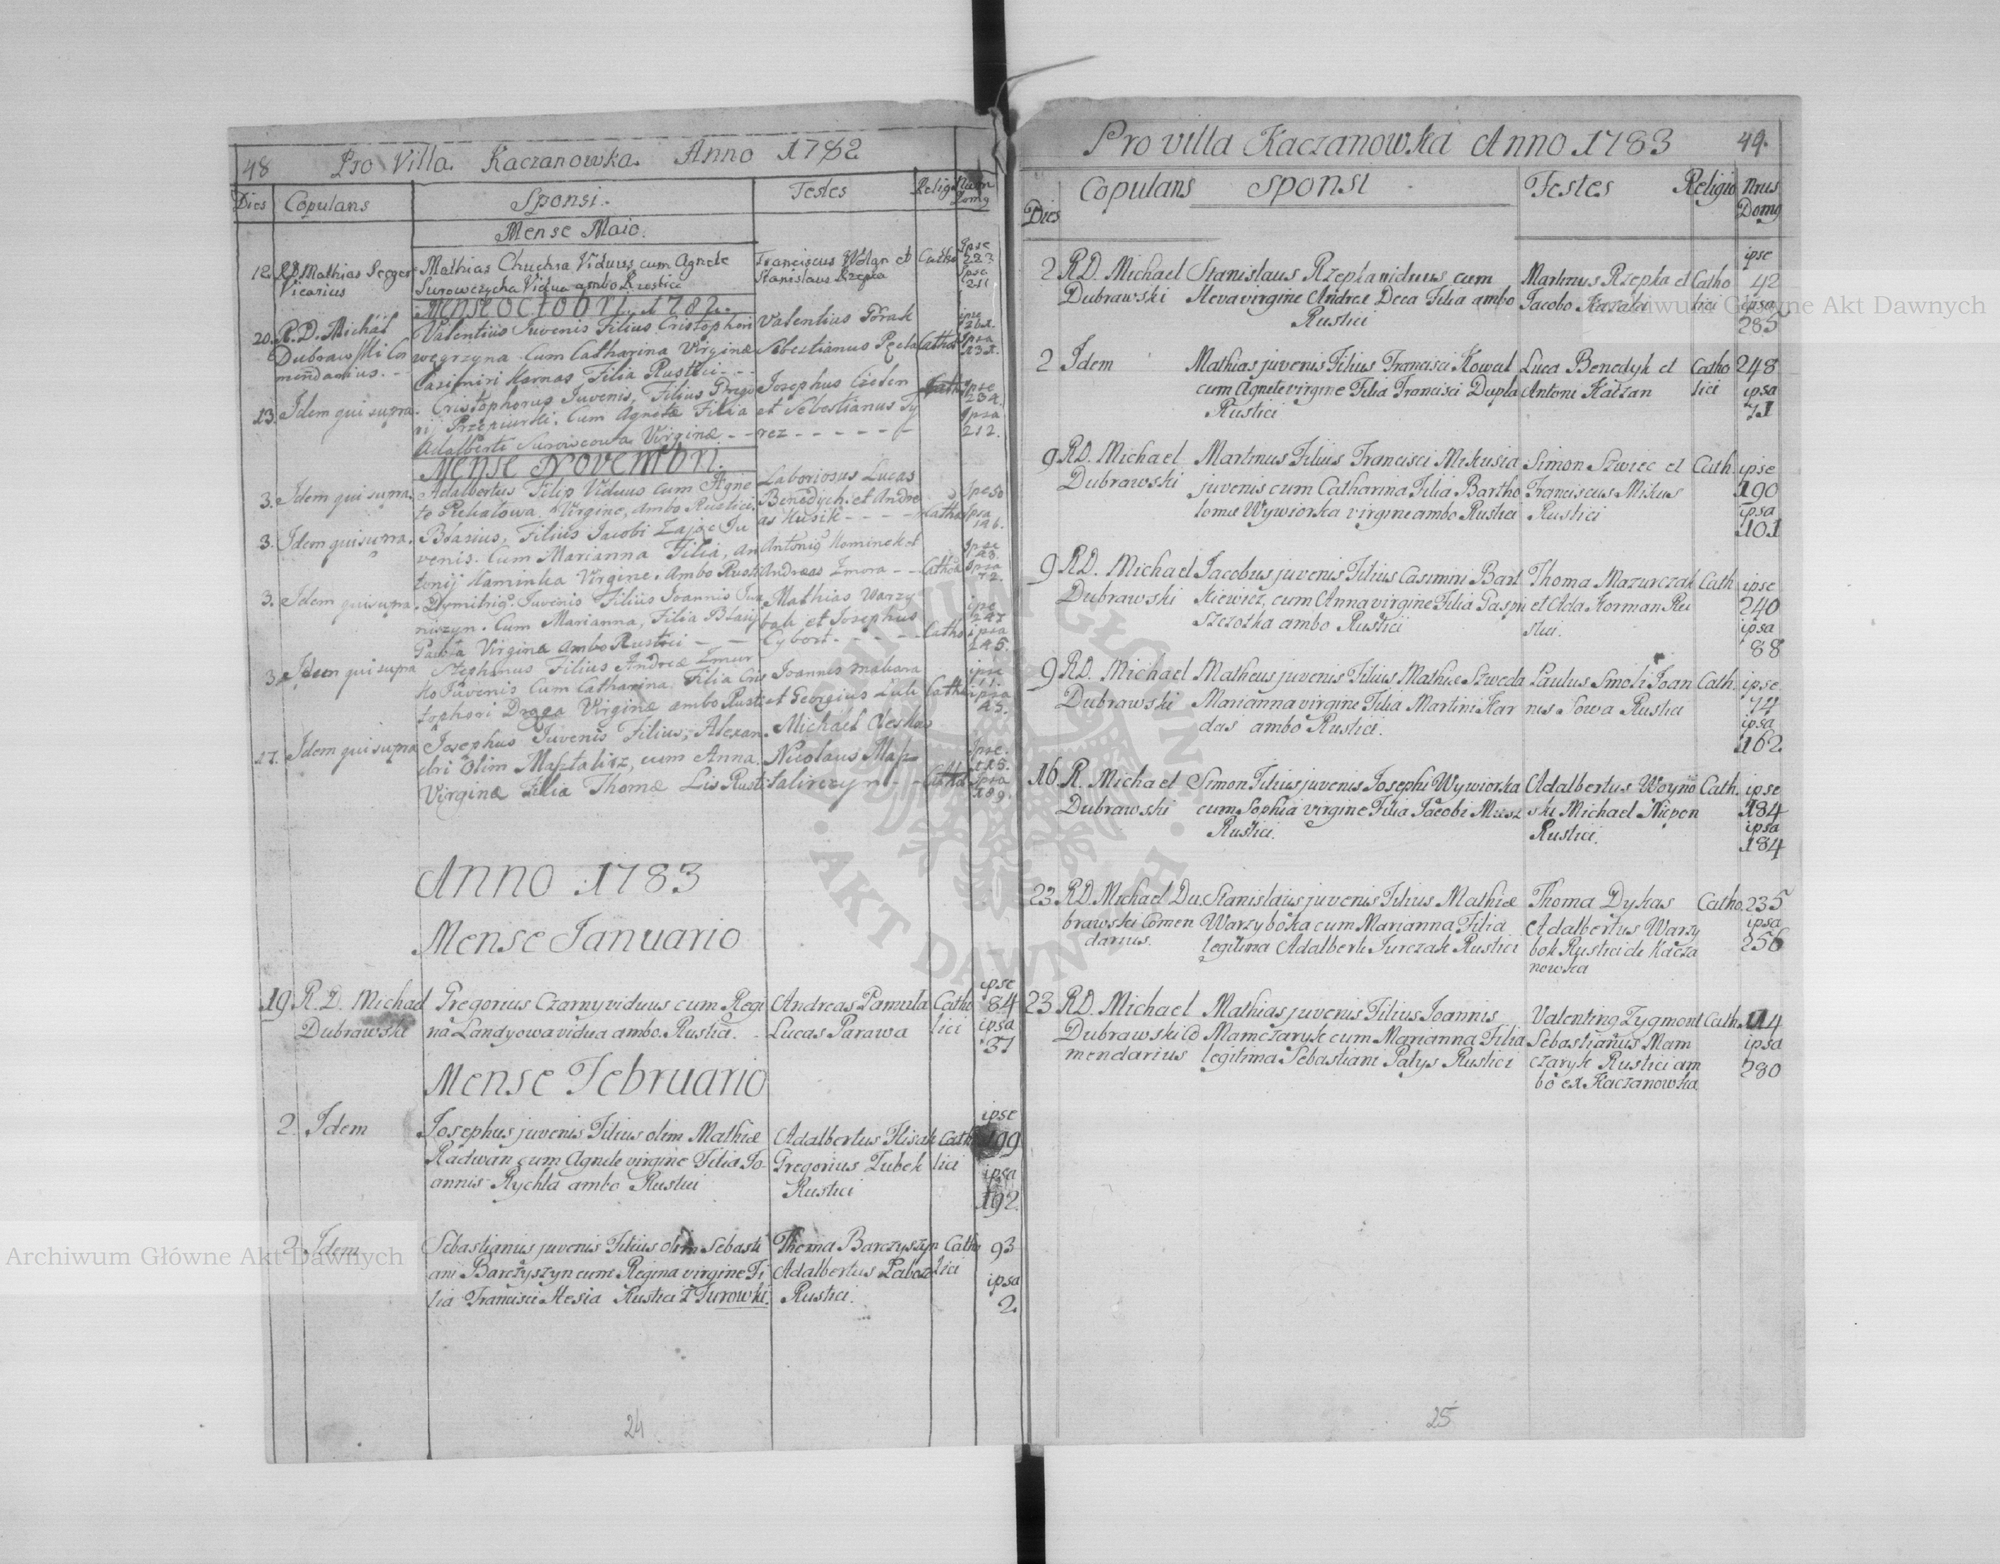 48 Pro Villa Kaczanowka. Anno 1782
Dies Copulans Sponsi. Testes Relig Num Domg
Mense Maio.
12. RD Mathias Vicarius
Mathias Chuchra Viduus cum Agnete
Surowczycha Vidua ambo Rustici
Franciscus Wolan et
Stanislaus Rzepka
Catho
Ipse
223
Ipsa
211
Mense Octobri. 1782.
20. R. D. Michäl
Dubrawski Com
mendarius.
Valentius Juvenis Filius Cristophori
Wegrzyna. Cum Catharina Virginæ
Casimiri Karnas Filia Rustici
Valentius Górak
Sebestianus Pecla
Cathol
ipse
Ipsa
13. Idem qui supra.
Cristophorus Juvenis, Filius Grego
rij Przepiurski. Cum Agnetæ Filia
Adalberti Surowcowa Virginæ.
Josephus Cielem
et Sebestianus Ty
rez
Ipse
234.
Ipsa
212.
Mense Novembri.
3. Idem qui supra.
Adalbertus Filip Viduus Cum Agne
te Pichalowa. Virgine, Ambo Rustici.
Laboriosus Lucas
Benedych. et Andre
as Kusik
Catho
Ipse 50
Ipsa
146.
3. Idem qui supra.
Błasius, Filius Jacobi Zajac Ju
venis. Cum Marianna Filia, An
tonij Kaminka Virgine. Ambo Rusti
Antonig Kominek et
Andreas Zmora
Cathol
Ipse
Ipsa
72.
3. Idem qui supra.
Dymitrig. Juvenis Filius Joannis Jur
niszyn. Cum Marianna, Filia Błasij
Pacła Virginæ Ambo Rustici
Mathias Warzy
bok et Josephus
Cybort.
Catho
ipse
247
ipsa
145.
3. Idem qui supra
Stephanus Filius Andreæ Zmur
ko Juvenis Cum Catharina. Filia Cris
tophori Draga Virginæ ambo Rusti
Joannis Mahara
et Georgius Luli
Catho
ipse
ipsa
45.
17. Idem qui supra
Josephus Juvenis Filius, Alexan
dri Olim Masztalisz, cum Anna
Virginæ Filia Thomæ Lis Rusti
Michael Oleskas
Nicolaus Masz
talirczyn
Cathol
Ipse.
115.
Ipsa
189.
Anno 1783
Mense Januario
19. R. D. Michael
Dubrawski
Gregorius Czarny viduus cum Regi
na Landyowa vidua ambo. Rustici.
Andreas Pamula
Lucas Parawa
Catho
lici
ipse
84
ipsa
37
Mense Februario
2. Idem
Josephus juvenis Filius olim Mathiæ
Radwan cum Agnete virgine Filia Jo
annis Rychla ambo Rustici
Adalbertus Flisak
Gregorius Zubek
Rustici
Cath
lici
ipse
199
ipsa
192.
2. Idem
Sebastianus juvenis Filius olim Sebasti
ani Barczyszyn cum Regina virgine Fi
lia Francisci Hesia Rustici z Turowki.
Thoma Barczyszyn
Adalbertus Laboz
Rustici.
Cath
lici
93
ipsa
2.
24
Pro villa Kaczanowka Anno 1783 49.
Dies Copulans Sponsi Testes Religio Nrus Domg
2 RD. Michael
Dubrawski
Stanislaus Rzepka viduus cum
Heva virgine Andreæ Deca Filia ambo
Rustici
Martinus Rzepka et
Jacobo
Catho
lici
ipse
42
ipsa
285
2 Idem
Mathias juvenis Filius Francisci Kowal
cum Agnete virgine Filia Francisci Dupla
Rustici
Luca Benedyk et
Antoni Kaczan
Catho
lici
248
ipsa
71
9 RD. Michael
Dubrawski
Martinus Filius Francisci Mikusia
juvenis cum Catharina Filia Bartho
loma Wywiorka virgine ambo Rustici
Simon Szwiec et
Franciscus Mikus
Rustici
Cath.
ipse
190
ipsa
101
9 RD. Michael
Dubrawski
Jacobus juvenis Filius Casimiri Bart
kiewicz, cum Anna virgine Filia Gaspri
Szezozka ambo Rustici
Thoma Mazurczak
et Ada Korman Ru
stici.
Cath.
ipse
240
ipsa
88
9 RD. Michael
Dubrawski
Matheus juvenis Filius Mathiæ Szweda
Marianna virgine Filia Martini Kar
das ambo Rustici.
Paulus Smoli Joan
nis Sowa Rustici
Cath.
ipse
74
ipsa
162
16. R. Michael
Dubrawski
Simon Filius juvenis Josephi Wywiorka
cum Sophia virgine Filia Jacobi Mrusz
Rustici.
Adalbertus Woyno
ski Michael Niepon
Rustici.
Cath.
ipse
184
ipsa
184
23. RD. Michael Du
brawski Comen
darius.
Stanislaus juvenis Filius Mathiæ
Warzyboka cum Marianna Filia
legitima Adalberti Jurczak Rustici
Thoma Dykas
Adalbertus Warzy
bok Rustici de Kacza
nowka
Catho.
235
ipsa
256
23 RD. Michael
Dubrawski Co
mendarius
Mathias juvenis Filius Joannis
Mamczaryk cum Marianna Filia
legitima Sebastiani Patys Rustici
Valenting Zygmont
Sebastianus Mam
czaryk Rustici am
bo ex Kaczanowka
Cath.
114
ipsa
280
25
Archiwum Główne Akt Dawnych
Archiwum Główne Akt Dawnych
ARCHIWUM GŁÓWNE
AKT DAWNYCH